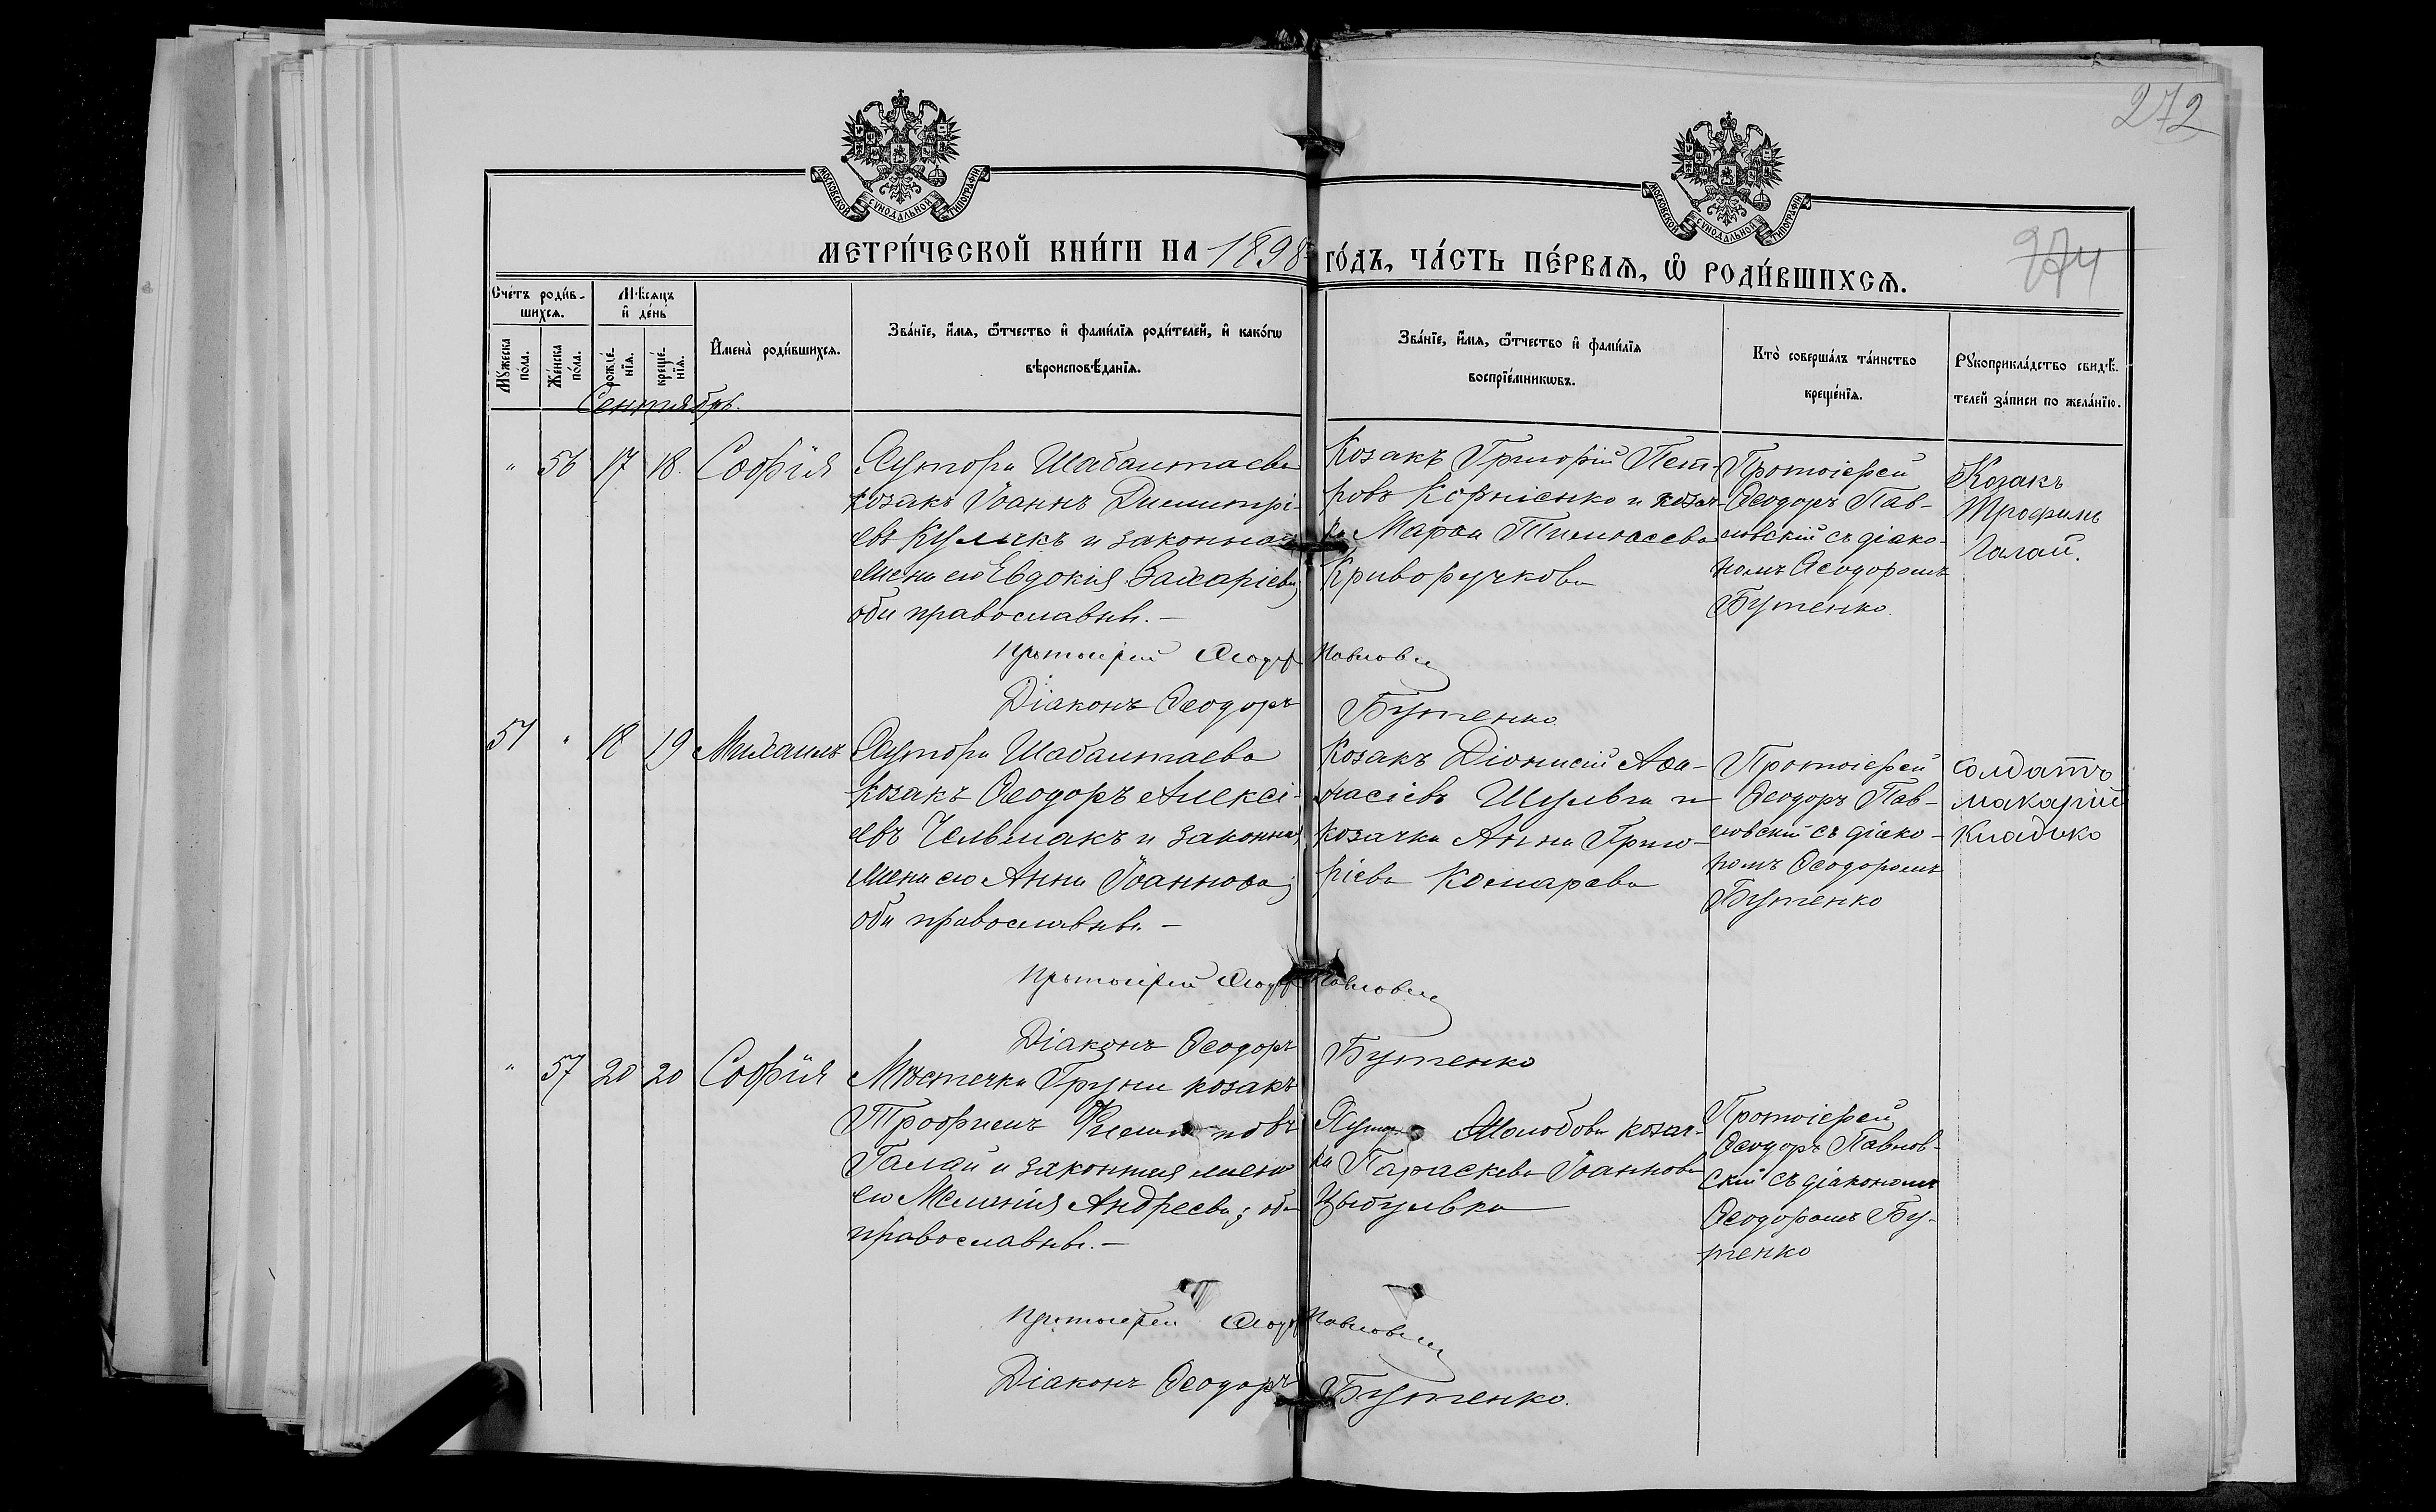 272
274
МЕТРИ́ЧЕСКОЙ КНИ́ГИ НА 1898 ГО́ДЪ, ЧА́СТЬ ПЕ́РВАѦ, Ѡ҆ РОДИ́ВШИХСѦ.
МОСКОВСКОЙ СѴНОДАЛЬНОЙ ТИПОГРАФІИ
МОСКОВСКОЙ СѴНОДАЛЬНОЙ ТИПОГРАФІИ
Сче́тъ роди́в-
шихсѧ.
Мѣ́сѧцъ
и҆ де́нь
Мꙋ́жеска
по́ла.
Же́нска
по́ла.
рожде́-
нїѧ.
креще́-
нїѧ.
И҆мена̀ роди́вшихсѧ.
Зва́нїе, и҆́мѧ, ѻ҆́тчество и҆ фами́лїѧ роди́телей, и҆ како́гѡ
вѣроисповѣ́данїѧ.
Зва́нїе, и҆́мѧ, ѻ҆́тчество и҆ фами́лїѧ
воспрїе́мникѡвъ.
Кто̀ соверша́лъ та́инство
креще́нїѧ.
Рꙋкоприкла́дство свидѣ́-
телей за́писи по жела́нїю.
Сентябрь.
" 56 17 18. Софія
Хутора Шабалтаева
козакъ Іоаннъ Димитрі-
евъ Куликъ и законная
жена его Евдокія Захаріева;
оба православные. —
Козакъ Григорій Пет-
ровъ Корніенко и козач-
ка Марѳа Тимоѳеева
Криворучкова
Протоіерей
Ѳеодоръ Пав-
ловскій съ діако-
номъ Ѳеодоромъ
Бутенко.
Козакъ
Трофимъ
Галай.
Протоіерей Ѳеодоръ Павловскій
Діаконъ Ѳеодоръ Бутенко
57 " 18 19 Михаилъ
Хутора Шабалтаева
козакъ Ѳеодоръ Алексі-
евъ Чельмакъ и законная
жена его Анна Іоаннова;
оба православные. —
Козакъ Діонисій Аѳа-
насіевъ Шульга и
козачка Анна Григо-
ріева Комарева
Протоіерей
Ѳеодоръ Пав-
ловскій съ діако-
номъ Ѳеодоромъ
Бутенко
солдатъ
макарий
Кладико
Протоіерей Ѳеодоръ Павловскій
Діаконъ Ѳеодоръ Бутенко
" 57 20 20 Софія
Мѣстечка Груни козакъ
Трофимъ
Галай и законная жена
его Меланія Андреева; оба
православные. —
козач-
ка Параскева Іоаннова
Цыбулька
Протоіерей
Ѳеодоръ Павлов-
скій съ діакономъ
Ѳеодоромъ Бу-
тенко
Протоіерей Ѳеодоръ Павловскій
Діаконъ Ѳеодоръ Бутенко.